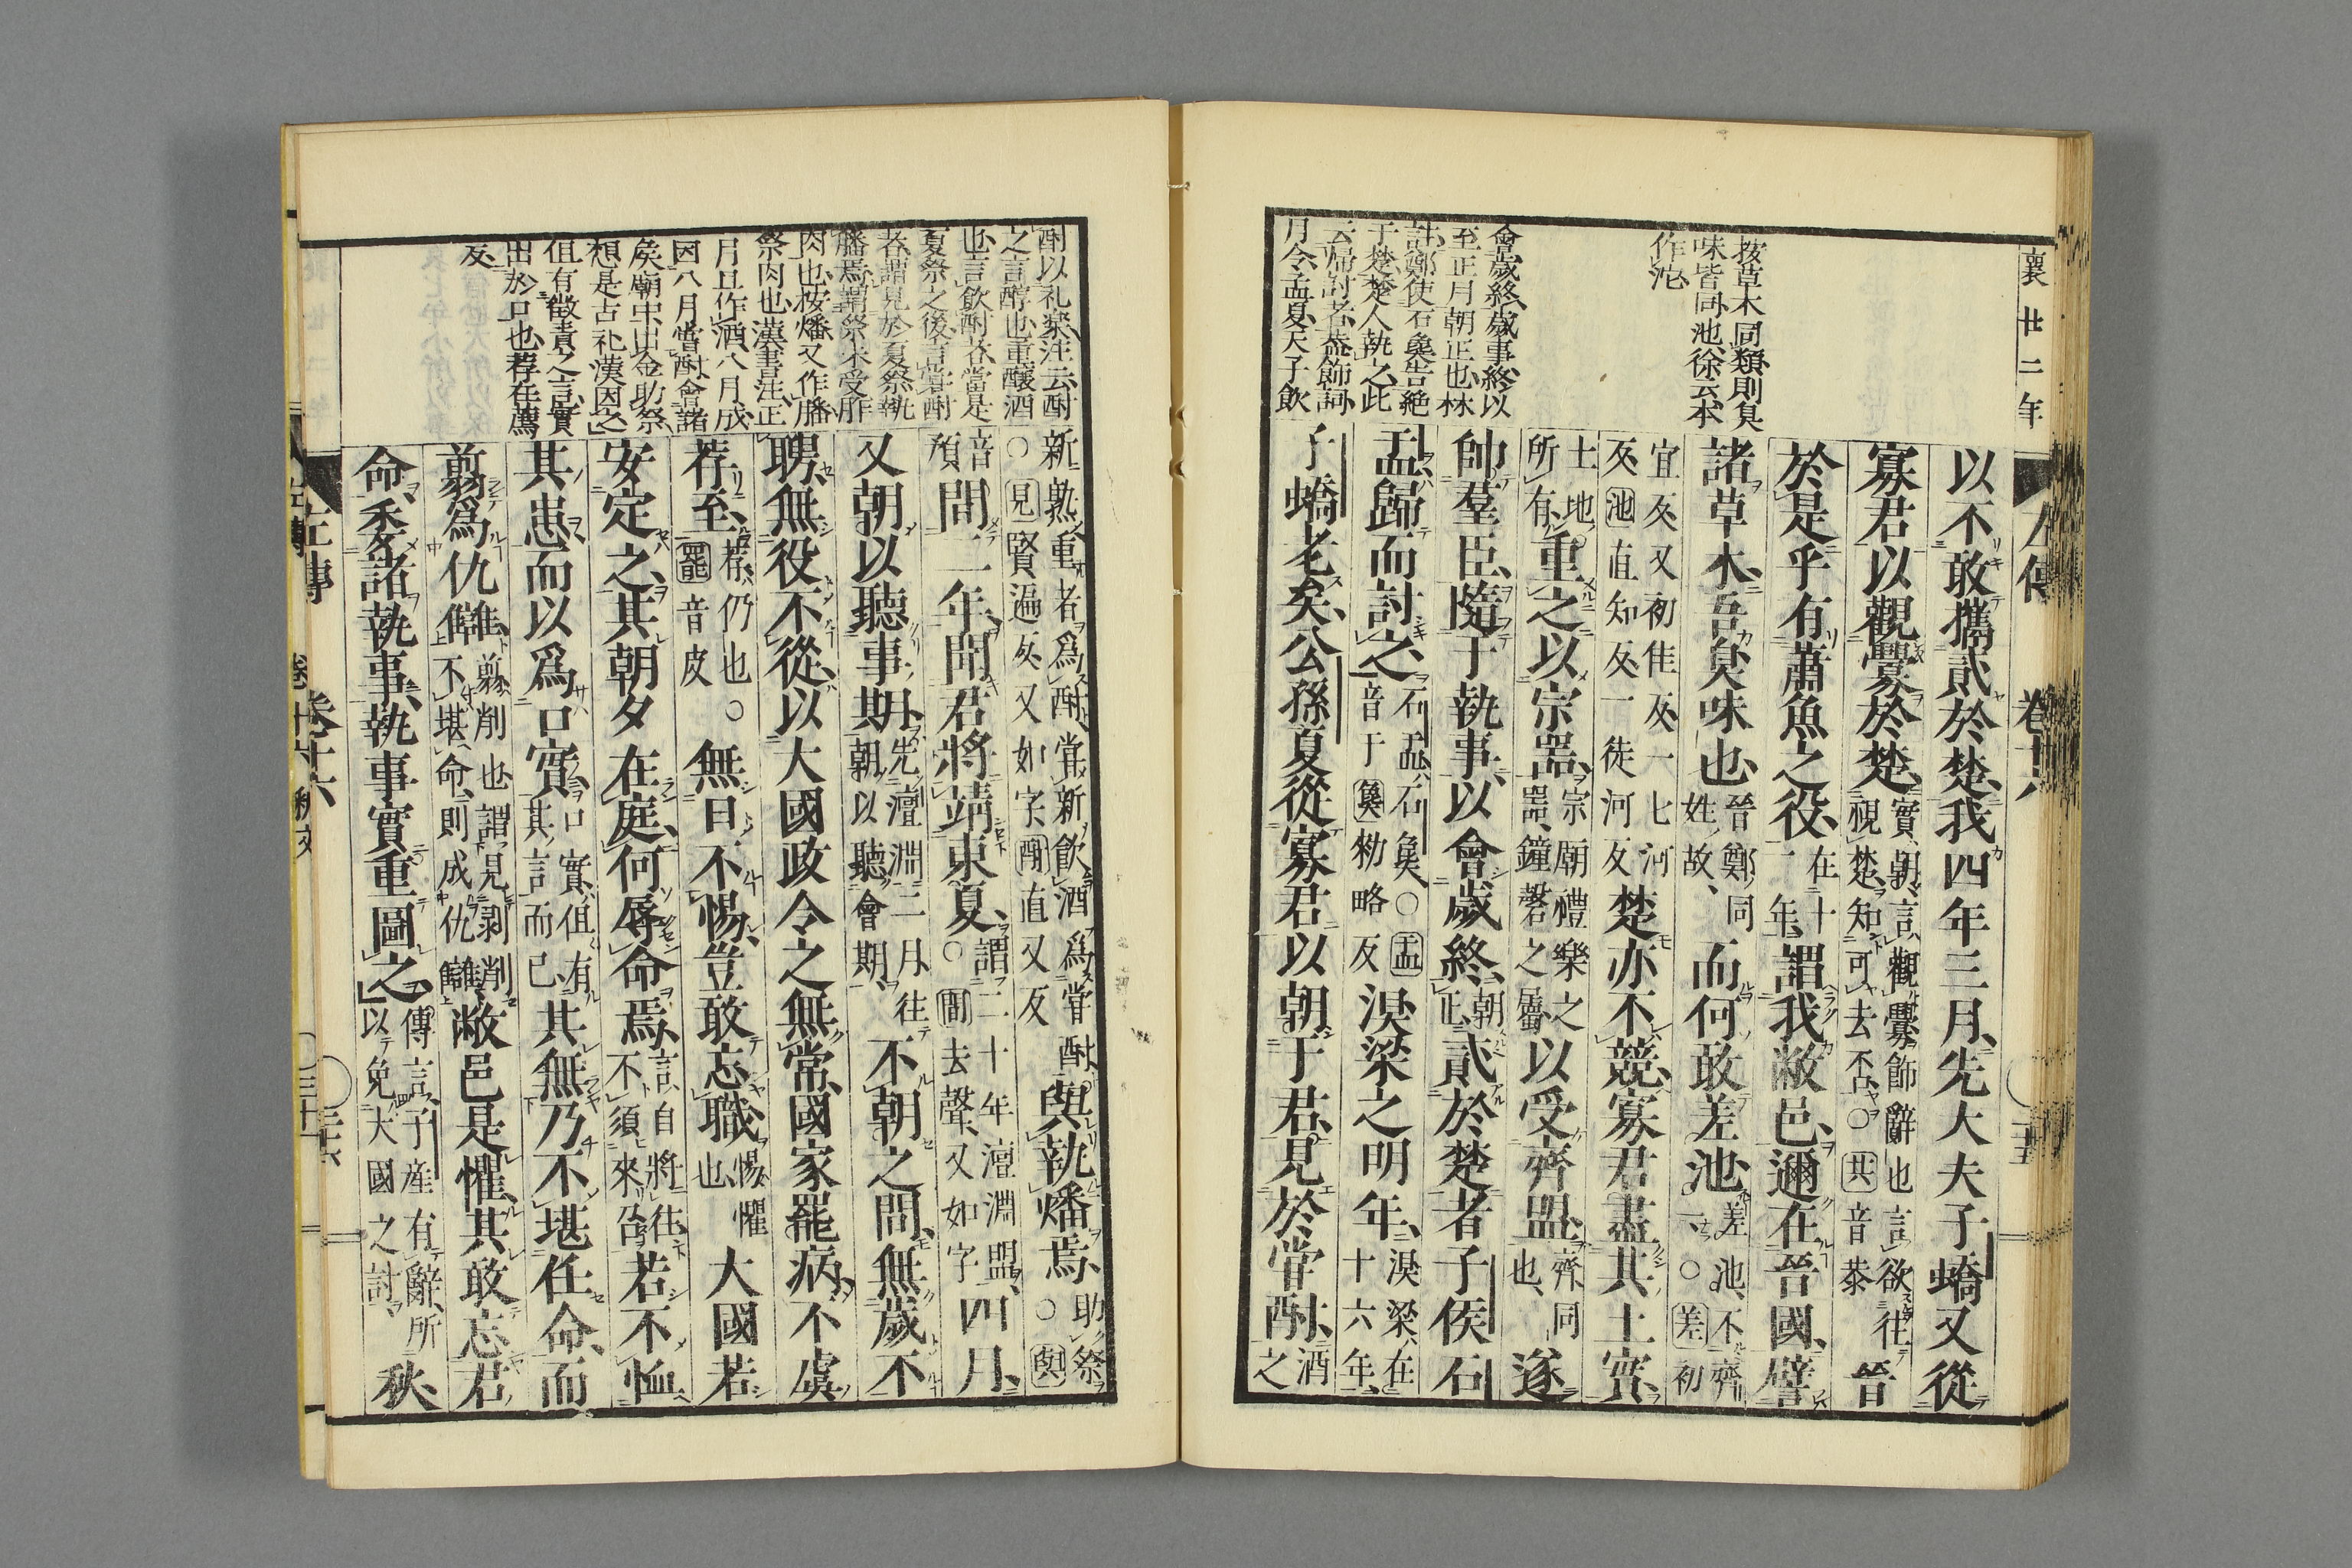 襄廿二年
左傳 卷十六
按草木同類則臭
味皆同池徐云本
作沱
會歲終歲事終以
至正月朝正也林
註鄭使石㚟告絶
于楚楚人執之此
云歸討者蓋飾詞
月令孟夏天子飲
以不敢攜貳於楚我四年三月先大夫子蟜又從
寡君以觀釁於楚實朝言觀釁飾辭也言欲往視楚知可去否○共音恭晉
於是乎有蕭魚之役在十一年謂我敝邑邇在晉國譬
諸草木吾臭味也晉鄭同姓故而何敢差池差池不齊一○差初
宜反又初佳反一七河反池直知反一徒河反楚亦不競寡君盡其土實
土地所有重之以宗器宗廟禮樂之器鐘磬之屬以受齊盟齊同也遂
帥羣臣隨于執事以會歲終朝正貳於楚者子侯石
盂歸而討之石盂石㚟○盂音于㚟勑略反湨梁之明年湨梁在十六年
子蟜老矣公孫夏從寡君以朝于君見於嘗酎酒之
酎以礼樂注云酎
之言醇也重醸酒
也言飲酎於嘗是
夏祭之後言嘗酎
者謂見於夏祭執
膰焉謂祭末受胙
肉也按燔又作膰
祭肉也漢書注正
月旦作酒八月成
因八月嘗酎會諸
矦廟中出金助祭
想是古礼漢因之
但有徴責之言實
出於口也荐在薦
反
新熟重者爲酎嘗新飲酒爲嘗酎○見賢遍反又如字酎直又反與執燔焉助祭○與
音預間二年聞君將靖東夏謂二十年澶淵盟○間去聲又如字四月
又朝以聽事期先澶淵二月往朝以聽會期不朝之間無歲不
聘無役不從以大國政令之無常國家罷病不虞
荐至荐仍也○罷音皮無日不惕豈敢忘職惕懼也大國若
安定之其朝夕在庭何辱命焉言自將往不須來召若不恤
其患而以爲口實口實但有其言而已其無乃不堪任命而
翦爲仇讎翦削也謂見剥削不堪命則成仇讎敝邑是懼其敢忘君
命委諸執事執事實重圖之傳言子産有辭所以免大國之討秋
左傳 卷十六